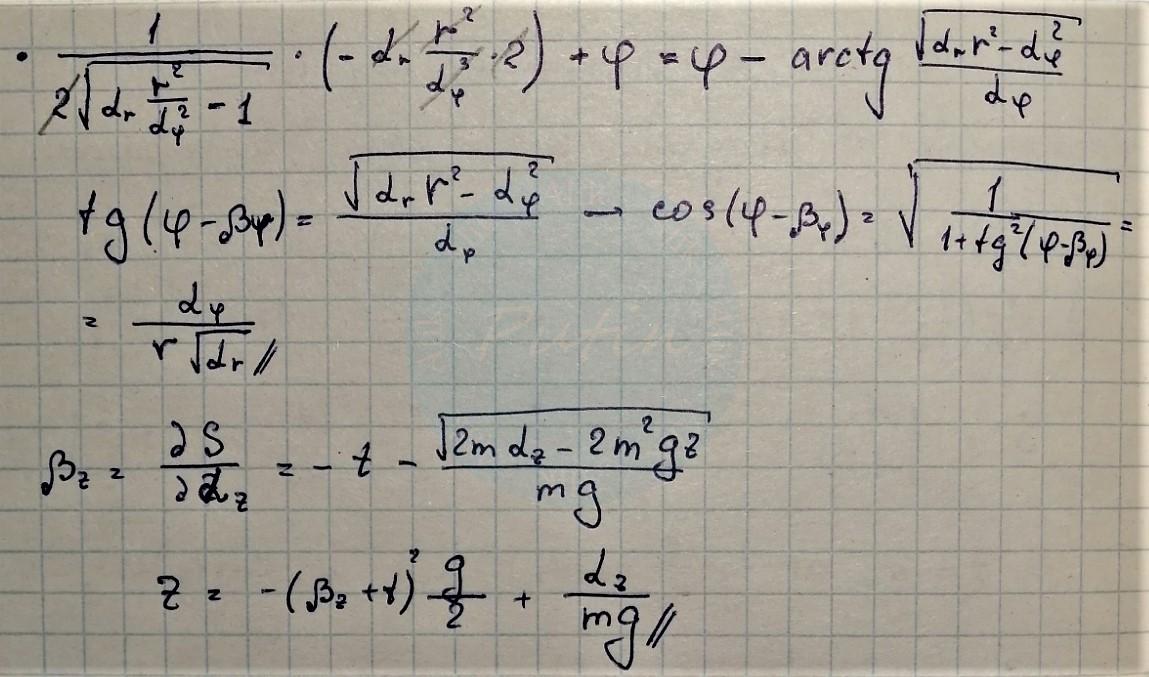 · 1/(2√(α_r r²/α_φ² - 1)) · (-α_r r²/α_φ³ · 2) + φ = φ - arctg √(α_r r² - α_φ²)/α_φ
tg(φ-β_φ) = √(α_r r² - α_φ²)/α_φ → cos(φ-β_φ) = √(1/(1+tg²(φ-β_φ))) =
= α_φ/(r√α_r) //
β_z = ∂S/∂α_z = -t - √(2mα_z - 2m²gz)/(mg)
z = -(β_z + t)² g/2 + α_z/(mg) //